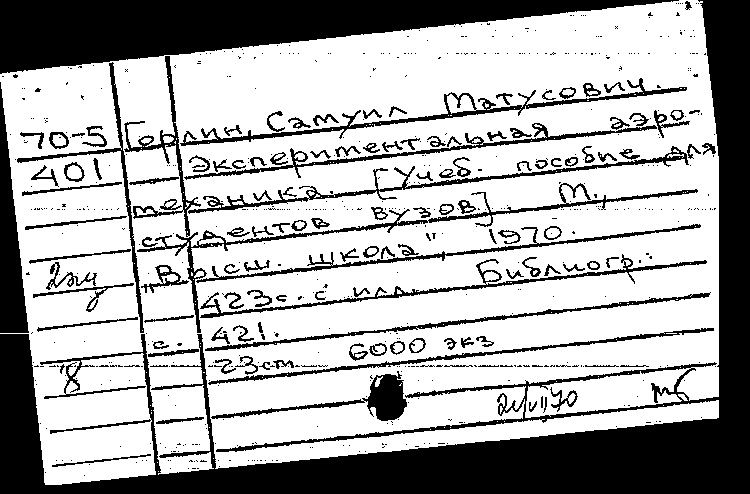 70-5 Горлин, Самуил Матусович.
401 Экспериментальная аэро-
механика. [Учеб. пособие для
студентов вузов]. М.,
2 экз „Высш. школа", 1970.
423 с. с илл. Библиогр.:
с. 421.
8 23 cm 6000 экз
70